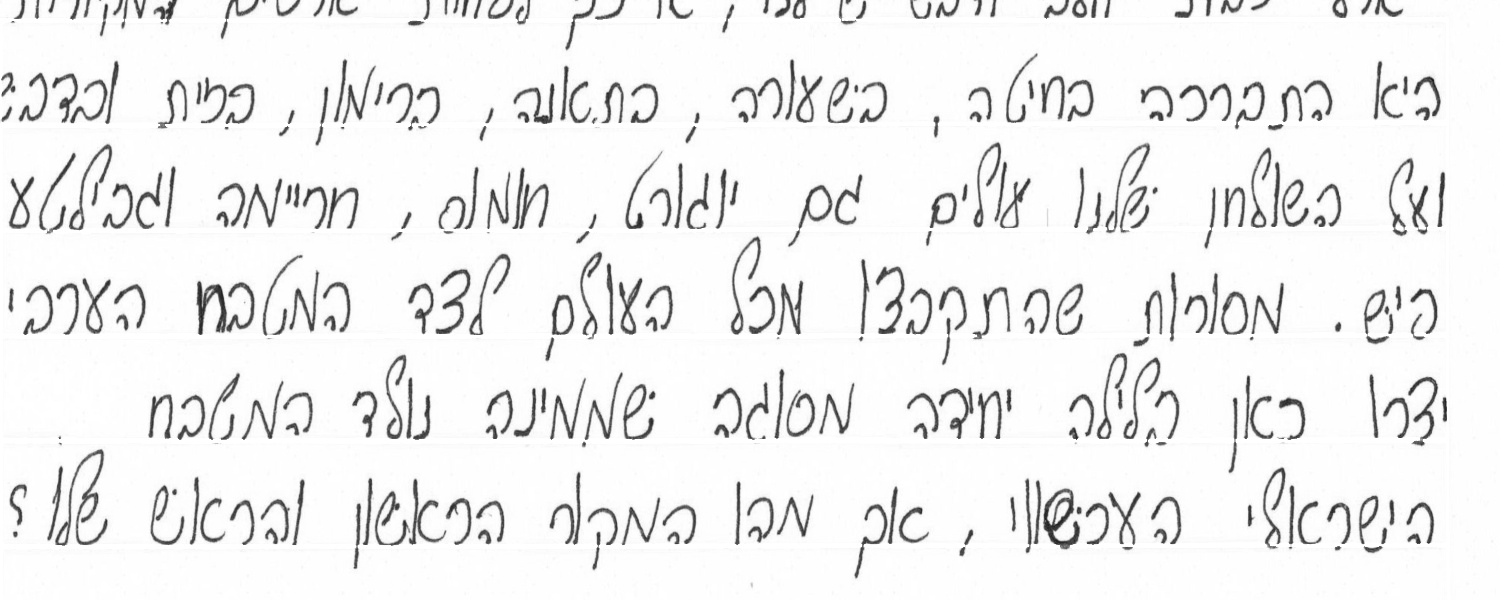 היא התברכה בחיטה, בשעורה, בתאנה, ברימון, בזית ובדבש
ועל השולחן שלנו עולים גם יוגורט, חומוס, חריימה וגפילטע
פיש. מסורות שהתקבצו מכל העולם לצד המטבח הערבי
יצרו כאן בלילה יחידה מסוגה שממינה נולד המטבח
הישראלי העכשווי, אך מהו המקור הראשון והראש שלו?